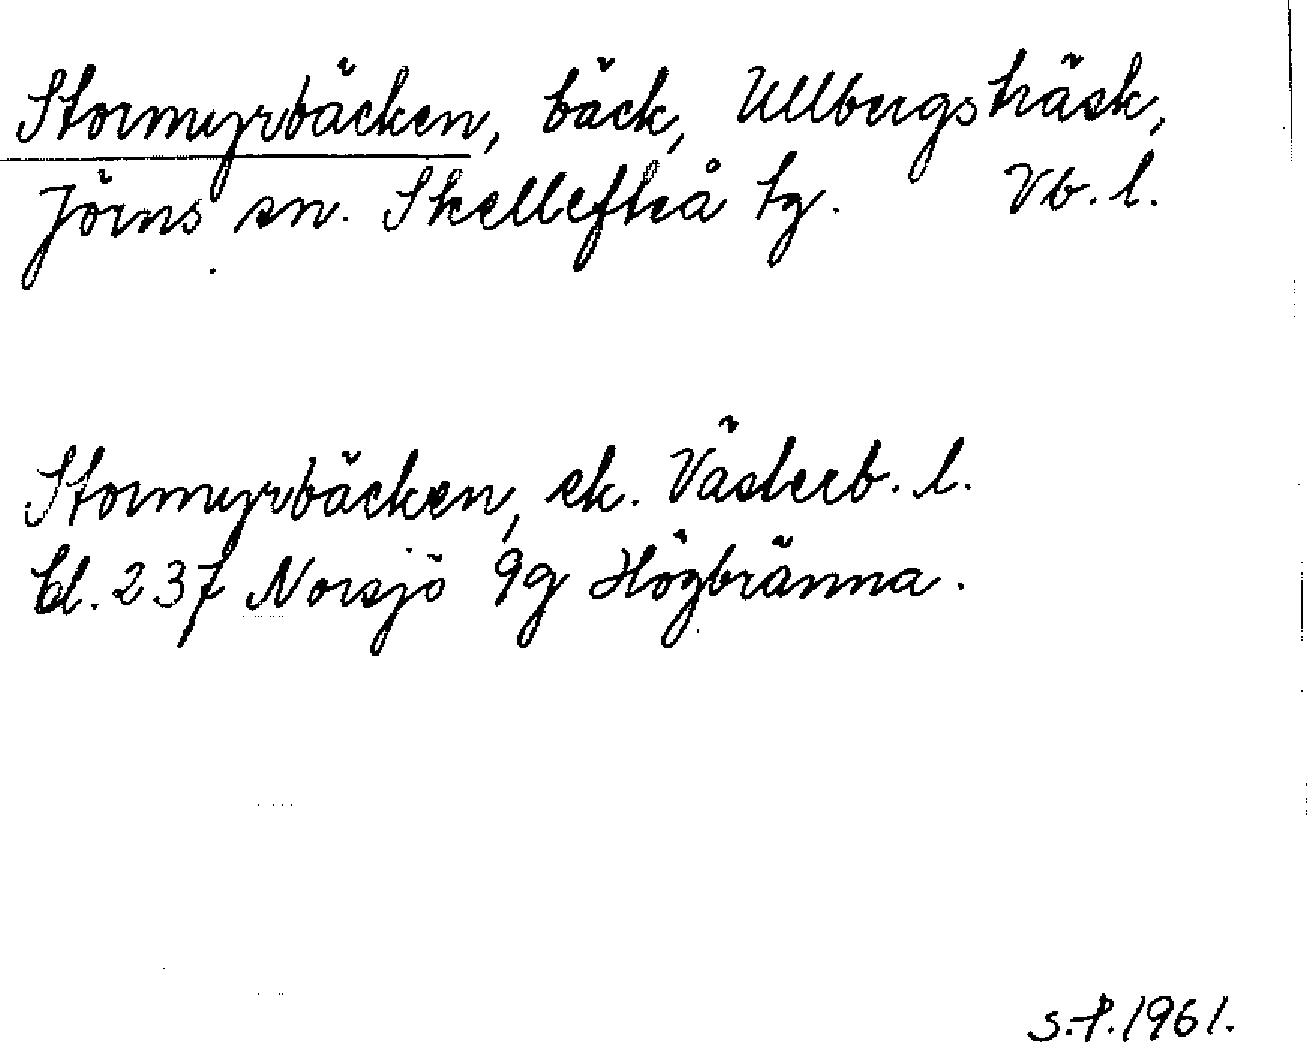 Stormyrbäcken, bäck, Ullbergsträsk,
Jörns sn. Skellefteå tg. Vb. l.
Stormyrbäcken, ek. Västerb. l.
bl. 237 Norsjö 9g Högbränna.
S.P. 1961.